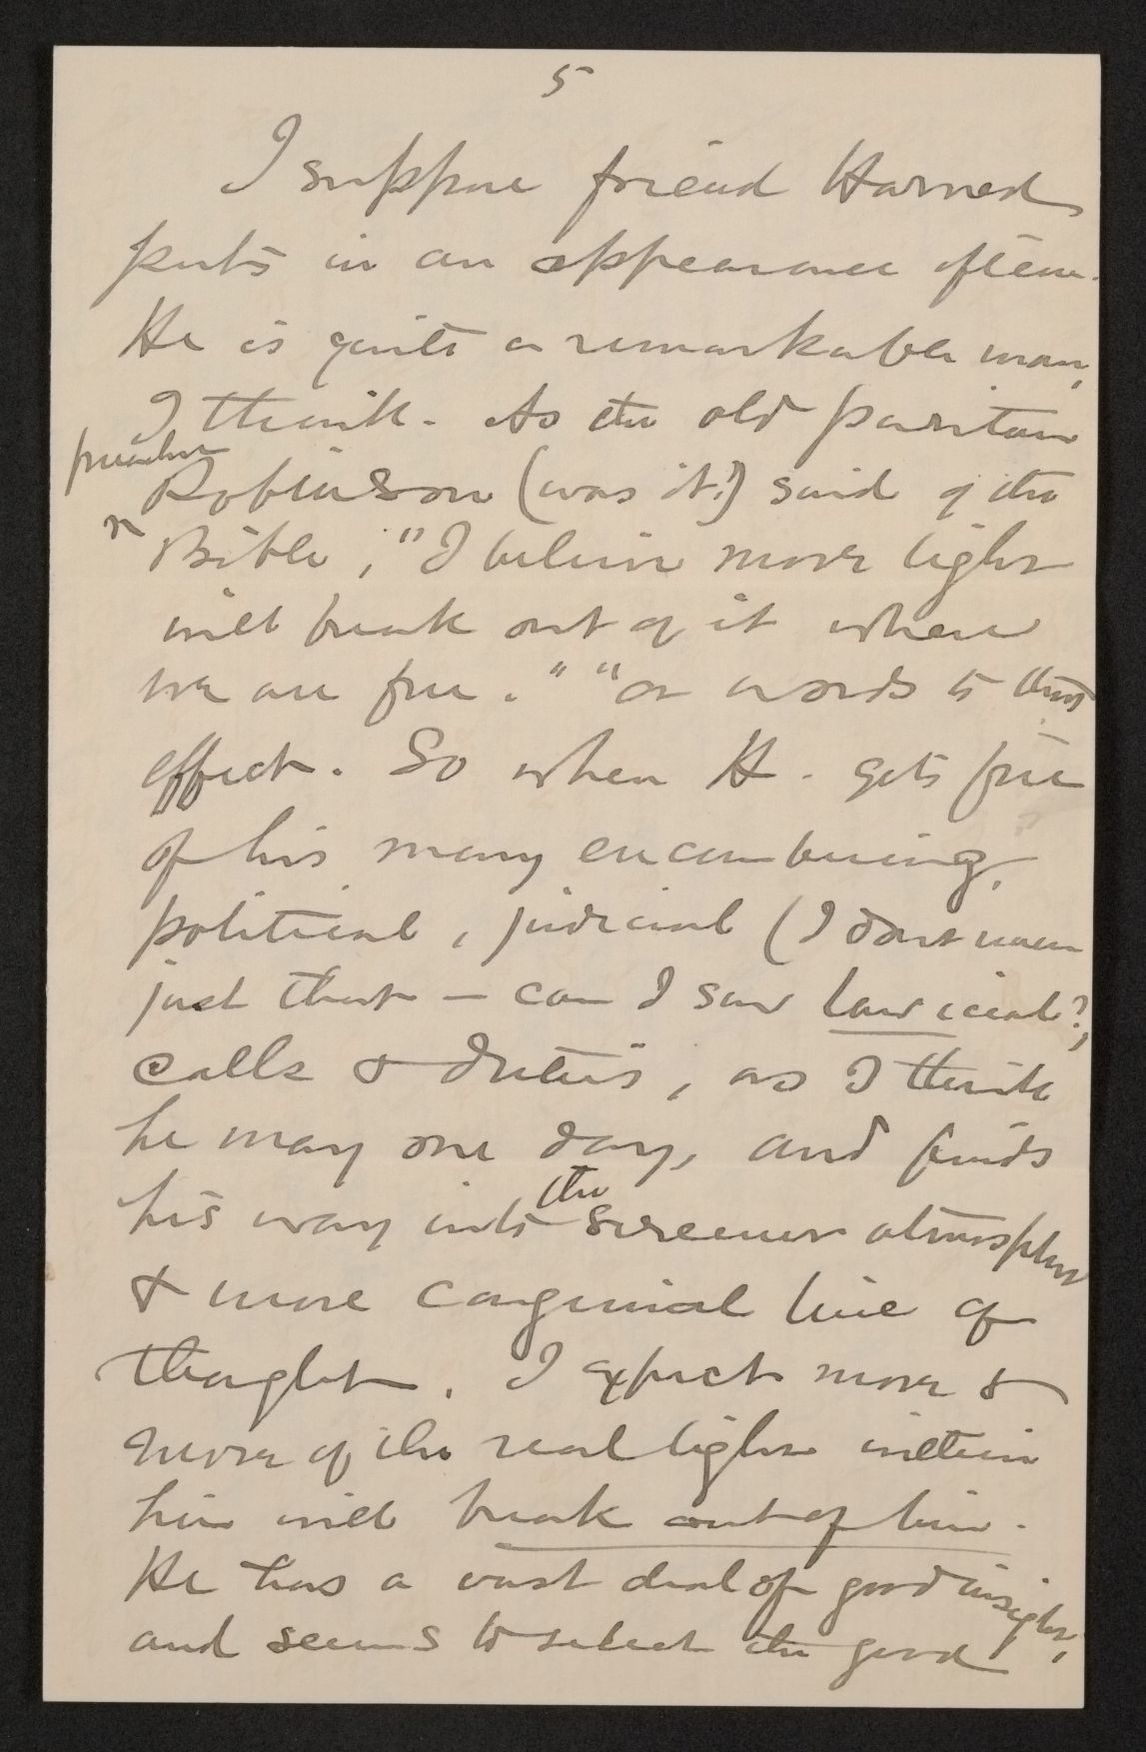 5
I suppose friend Harned
puts in an appearance often.
He is quite a remarkable man,
I think. As the old puritan
preacher
Robinson (was it?) said of the
Bible, "I believe more light
will break out of it when
we are free." "or words to that
effect. So when H. gets free
of his many encumbering,
political, judicial (I dont mean
just that — can I say lawicial?)
calls & duties, as I think
he may one day, and finds
the
his way into sereener atmosphere
& more congenial line of
thought. I expect more &
more of the real light within
him will break out of him.
He has a vast deal of good insight,
and seems to select the good